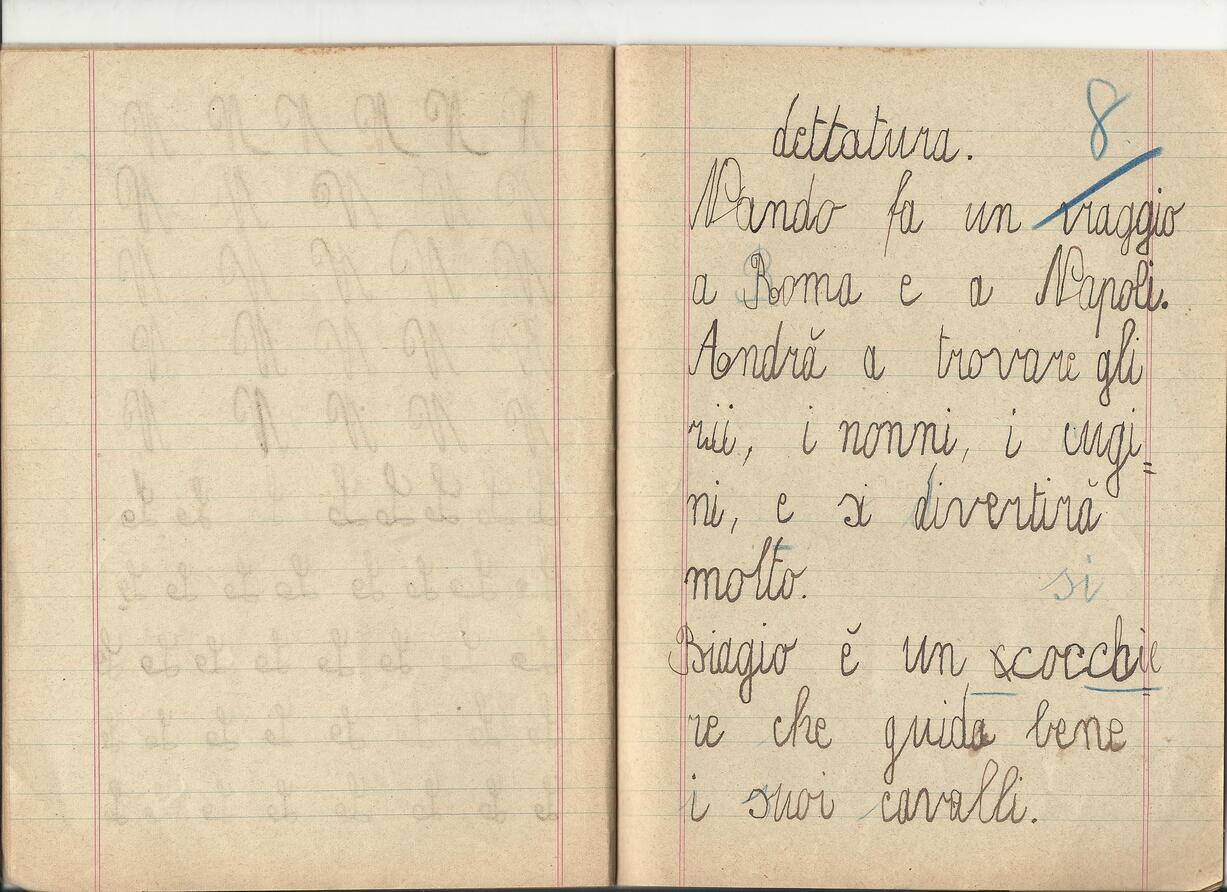 8
dettatura.
Nando fa un viaggio
a Roma e a Napoli.
Andrǎ a trovare gli
zii, i nonni, i cugi=
ni, e si divertirǎ
molto.
si
Biagio ě un scocchie=
re che guida bene
i suoi cavalli.